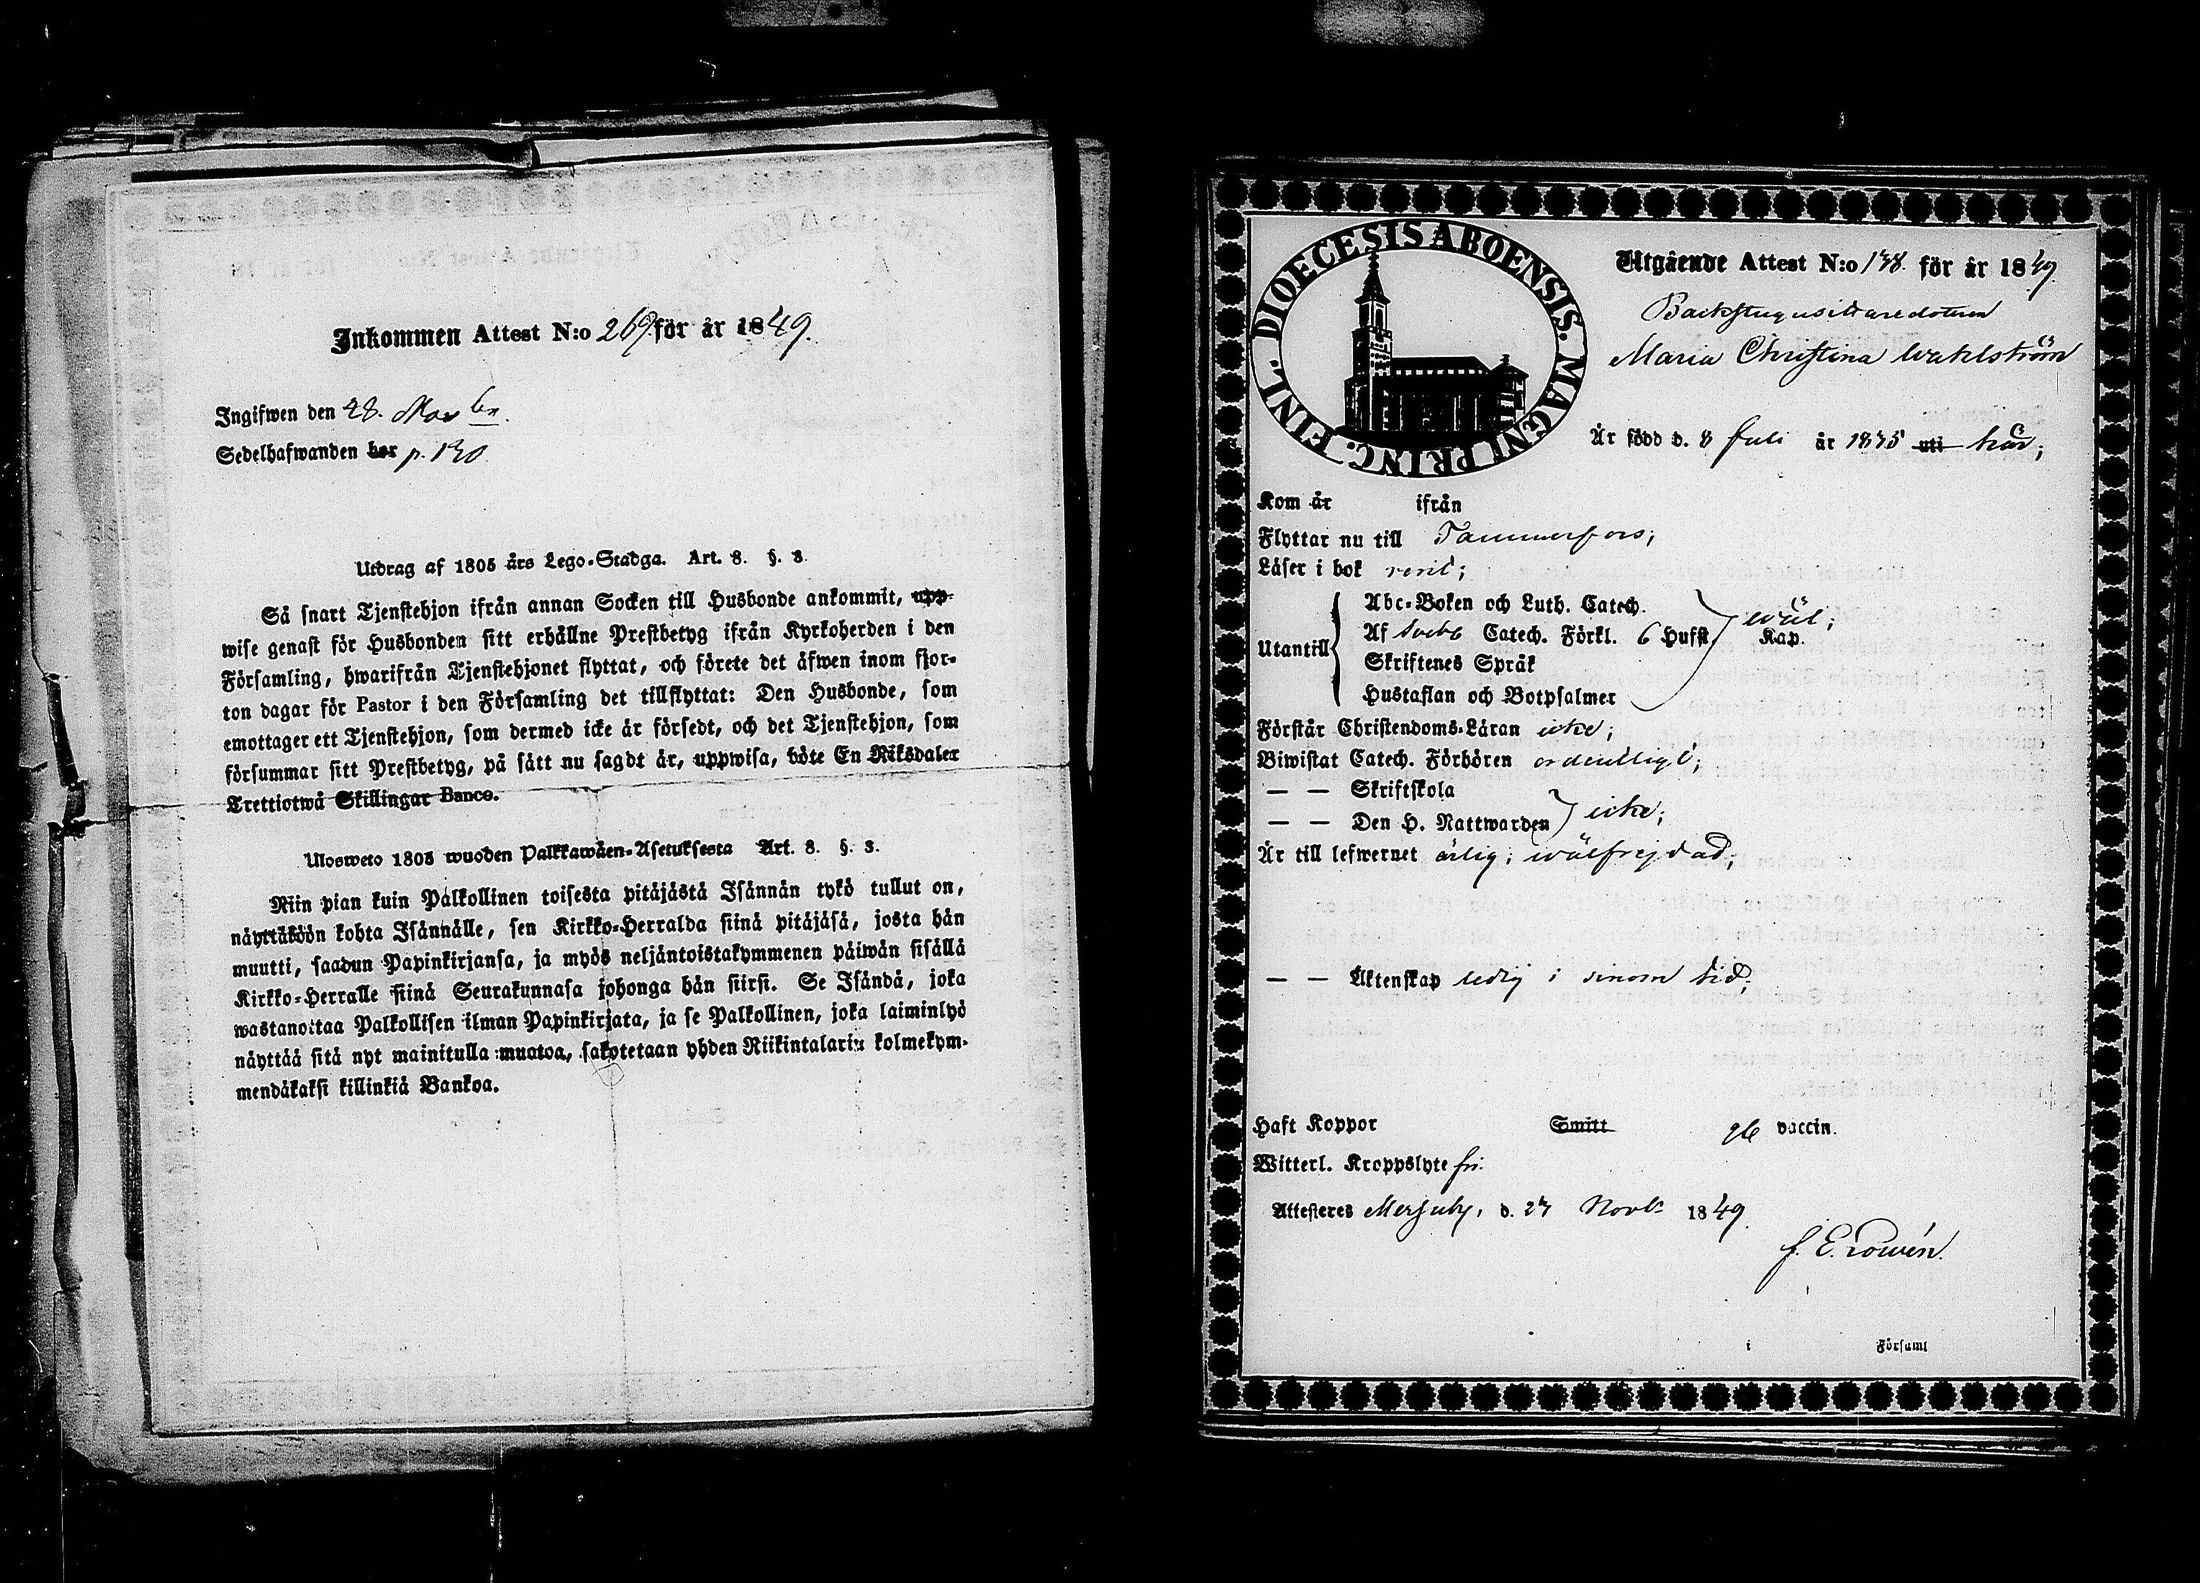 Inkommen Attest N:o 269 för år 1849.
Ingifwen den 28. Novbr.
Sedelhafwanden bor p. 130
Utdrag af 1805 års Lego-Stadga. Art. 8. §. 3.
Så snart Tjenstehjon ifrån annan Socken till Husbonde ankommit, upp-
wise genast för Husbonden sitt erhållne Prestbetyg ifrån Kyrkoherden i den
Församling, hwarifrån Tjenstehjonet flyttat, och förete det äfwen inom fjor-
ton dagar för Pastor i den Församling det tillflyttat: Den Husbonde, som
emottager ett Tjenstehjon, som dermed icke är försedt, och det Tjenstehjon, som
försummar sitt Prestbetyg, på sätt nu sagdt är, uppwisa, böte En Riksdaler
Trettiotwå Skillingar Banco.
Ulosweto 1805 wuoden Palkkawäen-Asetuksesta Art. 8. §. 3.
Niin pian kuin Palkollinen toisesta pitäjästä Isännän tykö tullut on,
näyttäköön kohta Isännälle, sen Kirkko-Herralda siinä pitäjäsä, josta hän
muutti, saadun Papinkirjansa, ja myös neljäntoistakymmenen päiwän sisällä
Kirkko-Herralle siinä Seurakunnasa johonga hän siirsi. Se Isändä, joka
wastanottaa Palkollisen ilman Papinkirjata, ja se Palkollinen, joka laiminlyö
näyttää sitä nyt mainitulla muotoa, sakotetaan yhden Riikintalarin kolmekym-
mendäkaksi killinkiä Bankoa.
DIOECESIS ABOENSIS. MAGNI PRINC. FINL.
Utgående Attest N:o 138. för år 1849.
Backstugusittaredotren
Maria Christina Wahlström
Är född d. 8 Juli år 1835 uti här;
Kom år ifrån
Flyttar nu till Tammerfors;
Läser i bok rent;
Utantill
Abc-Boken och Luth. Catech.
Af Sveb. Catech. Förkl. 6 Hufst. Kap. wäl;
Skriftenes Språk
Hustaflan och Botpsalmer
Förstår Christendoms-Läran icke;
Biwistat Catech. Förhören ordentligt;
— — Skriftskola
— — Den H. Nattwarden icke;
Är till lefwernet ärlig; wälfrejdad;
— — Äktenskap ledig i sinom tid;
Haft Koppor Smitt vaccin.
Witterl. Kroppslyte fri.
Attesteres d. 27 Novbr 1849.
i Församl